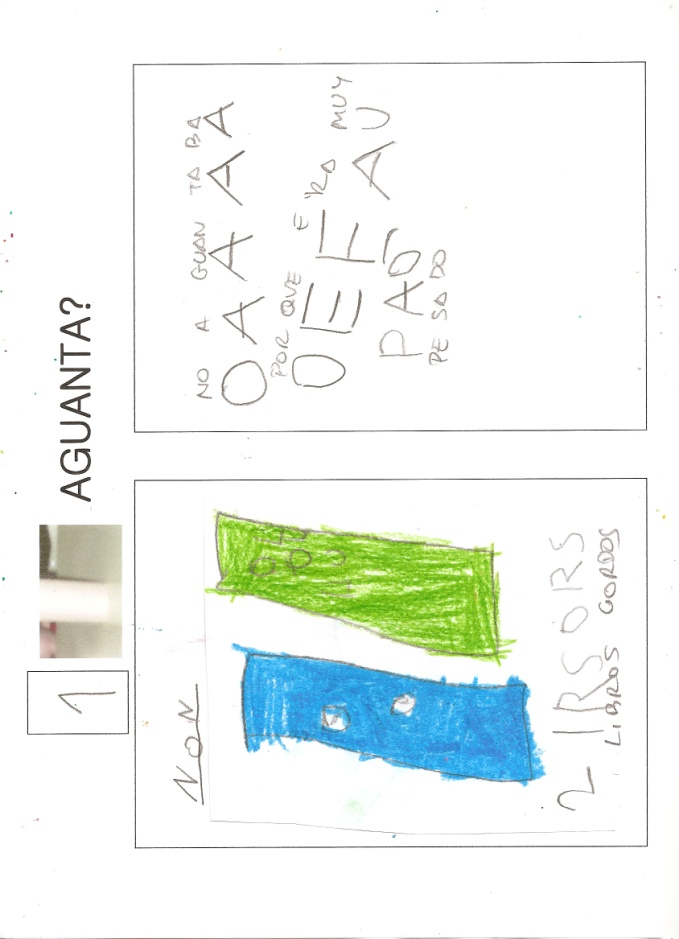 1 AGUANTA?
NON
2 IRSORS
LIBROS GORDOS
NO A GUAN TA BA
O A A A A
POR QUE E RA MUY
O E E A U
P A O
PE SA DO